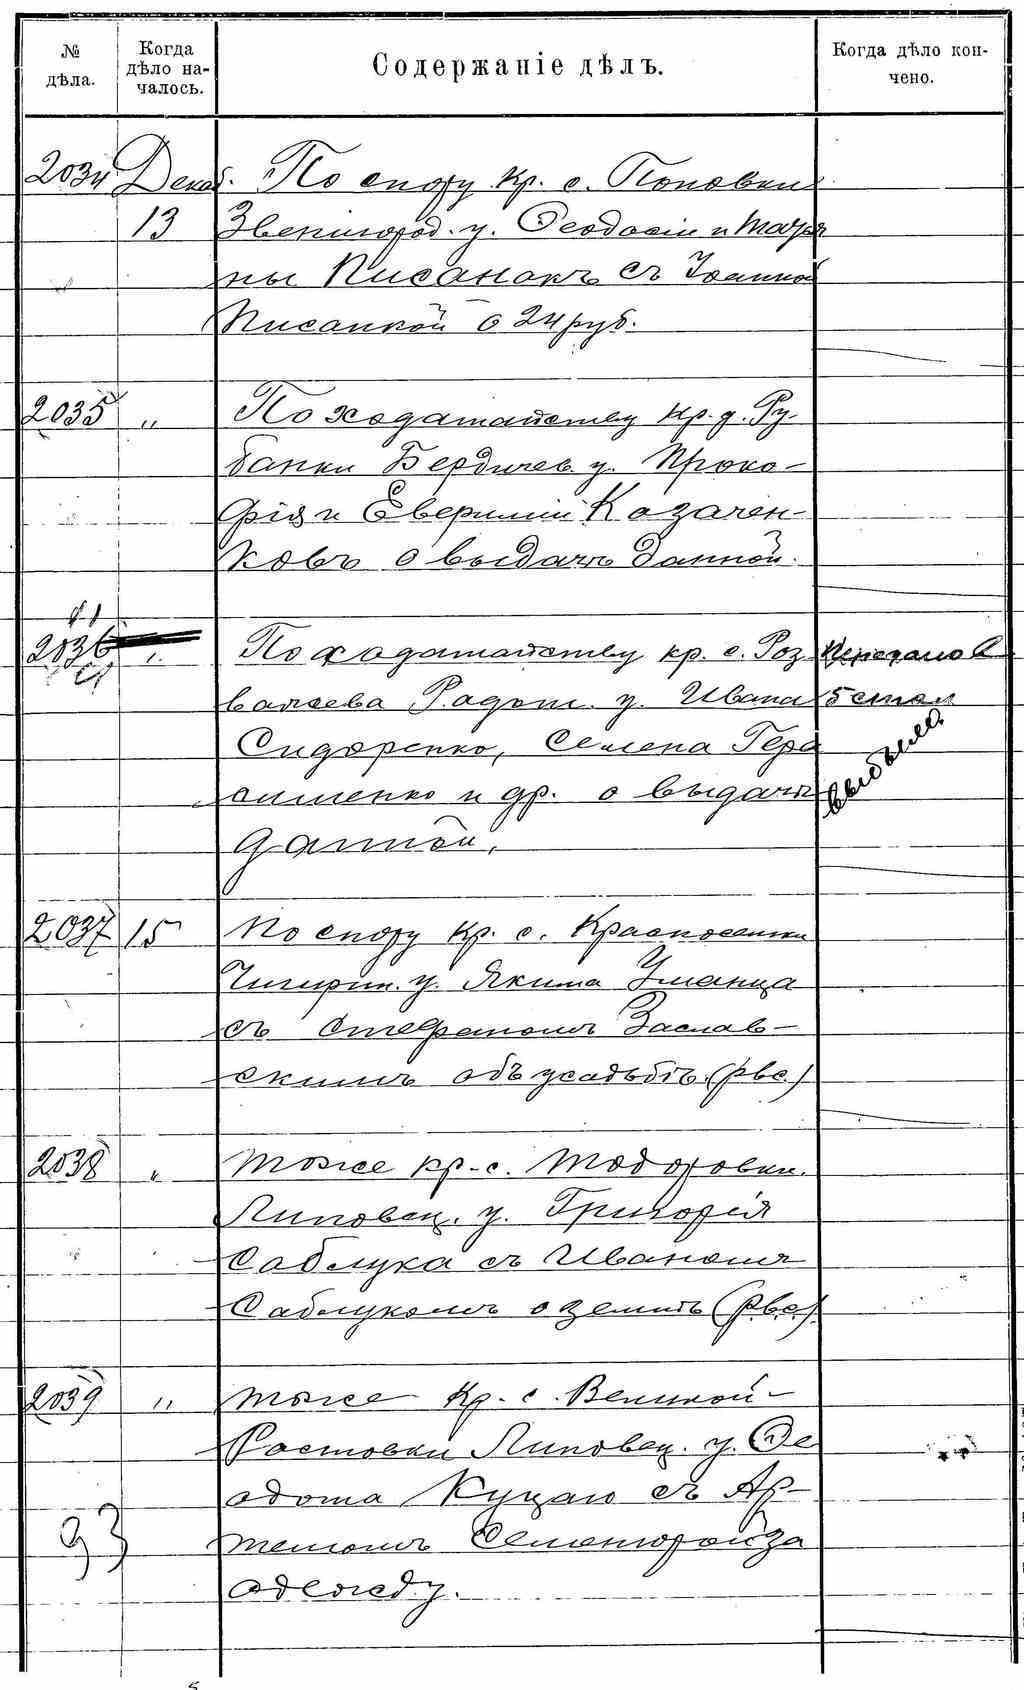 № дѣла. Когда дѣло началось. Содержаніе дѣлъ. Когда дѣло кончено.
2034 Декаб. По спору кр. с. Поповки
13 Звенигород. у. Ѳеодосіи и Татья
ны Писанокъ съ Іоанной
Писанкой о 24 руб.
2035 „ По ходатайству кр. д. Ру-
банки Бердичев. у. Проко-
фія и Евфиміи Казачен-
ковъ о выдачѣ данной.
2036 „ По ходатайству кр. с. Роз- Передано в
важева Радом. у. Ивана 5 стол
Сидоренко, Семена Гера
сименко и др. о выдачѣ выбыло
данной.
2037 15 По спору кр. с. Красноселки
Чигирин. у. Якима Уманца
съ Стефаномъ Заслав-
скимъ объ усадьбѣ. (рвс.)
2038 „ Тоже кр. с. Тодоровки
Липовец. у. Григорія
Саблука съ Иваномъ
Саблукомъ о землѣ (рвс.)
2039 „ Тоже кр. с. Великой-
Ростовки Липовец. у. Ѳе
одота Куцаго съ Ар-
темомъ за
одежду.
93